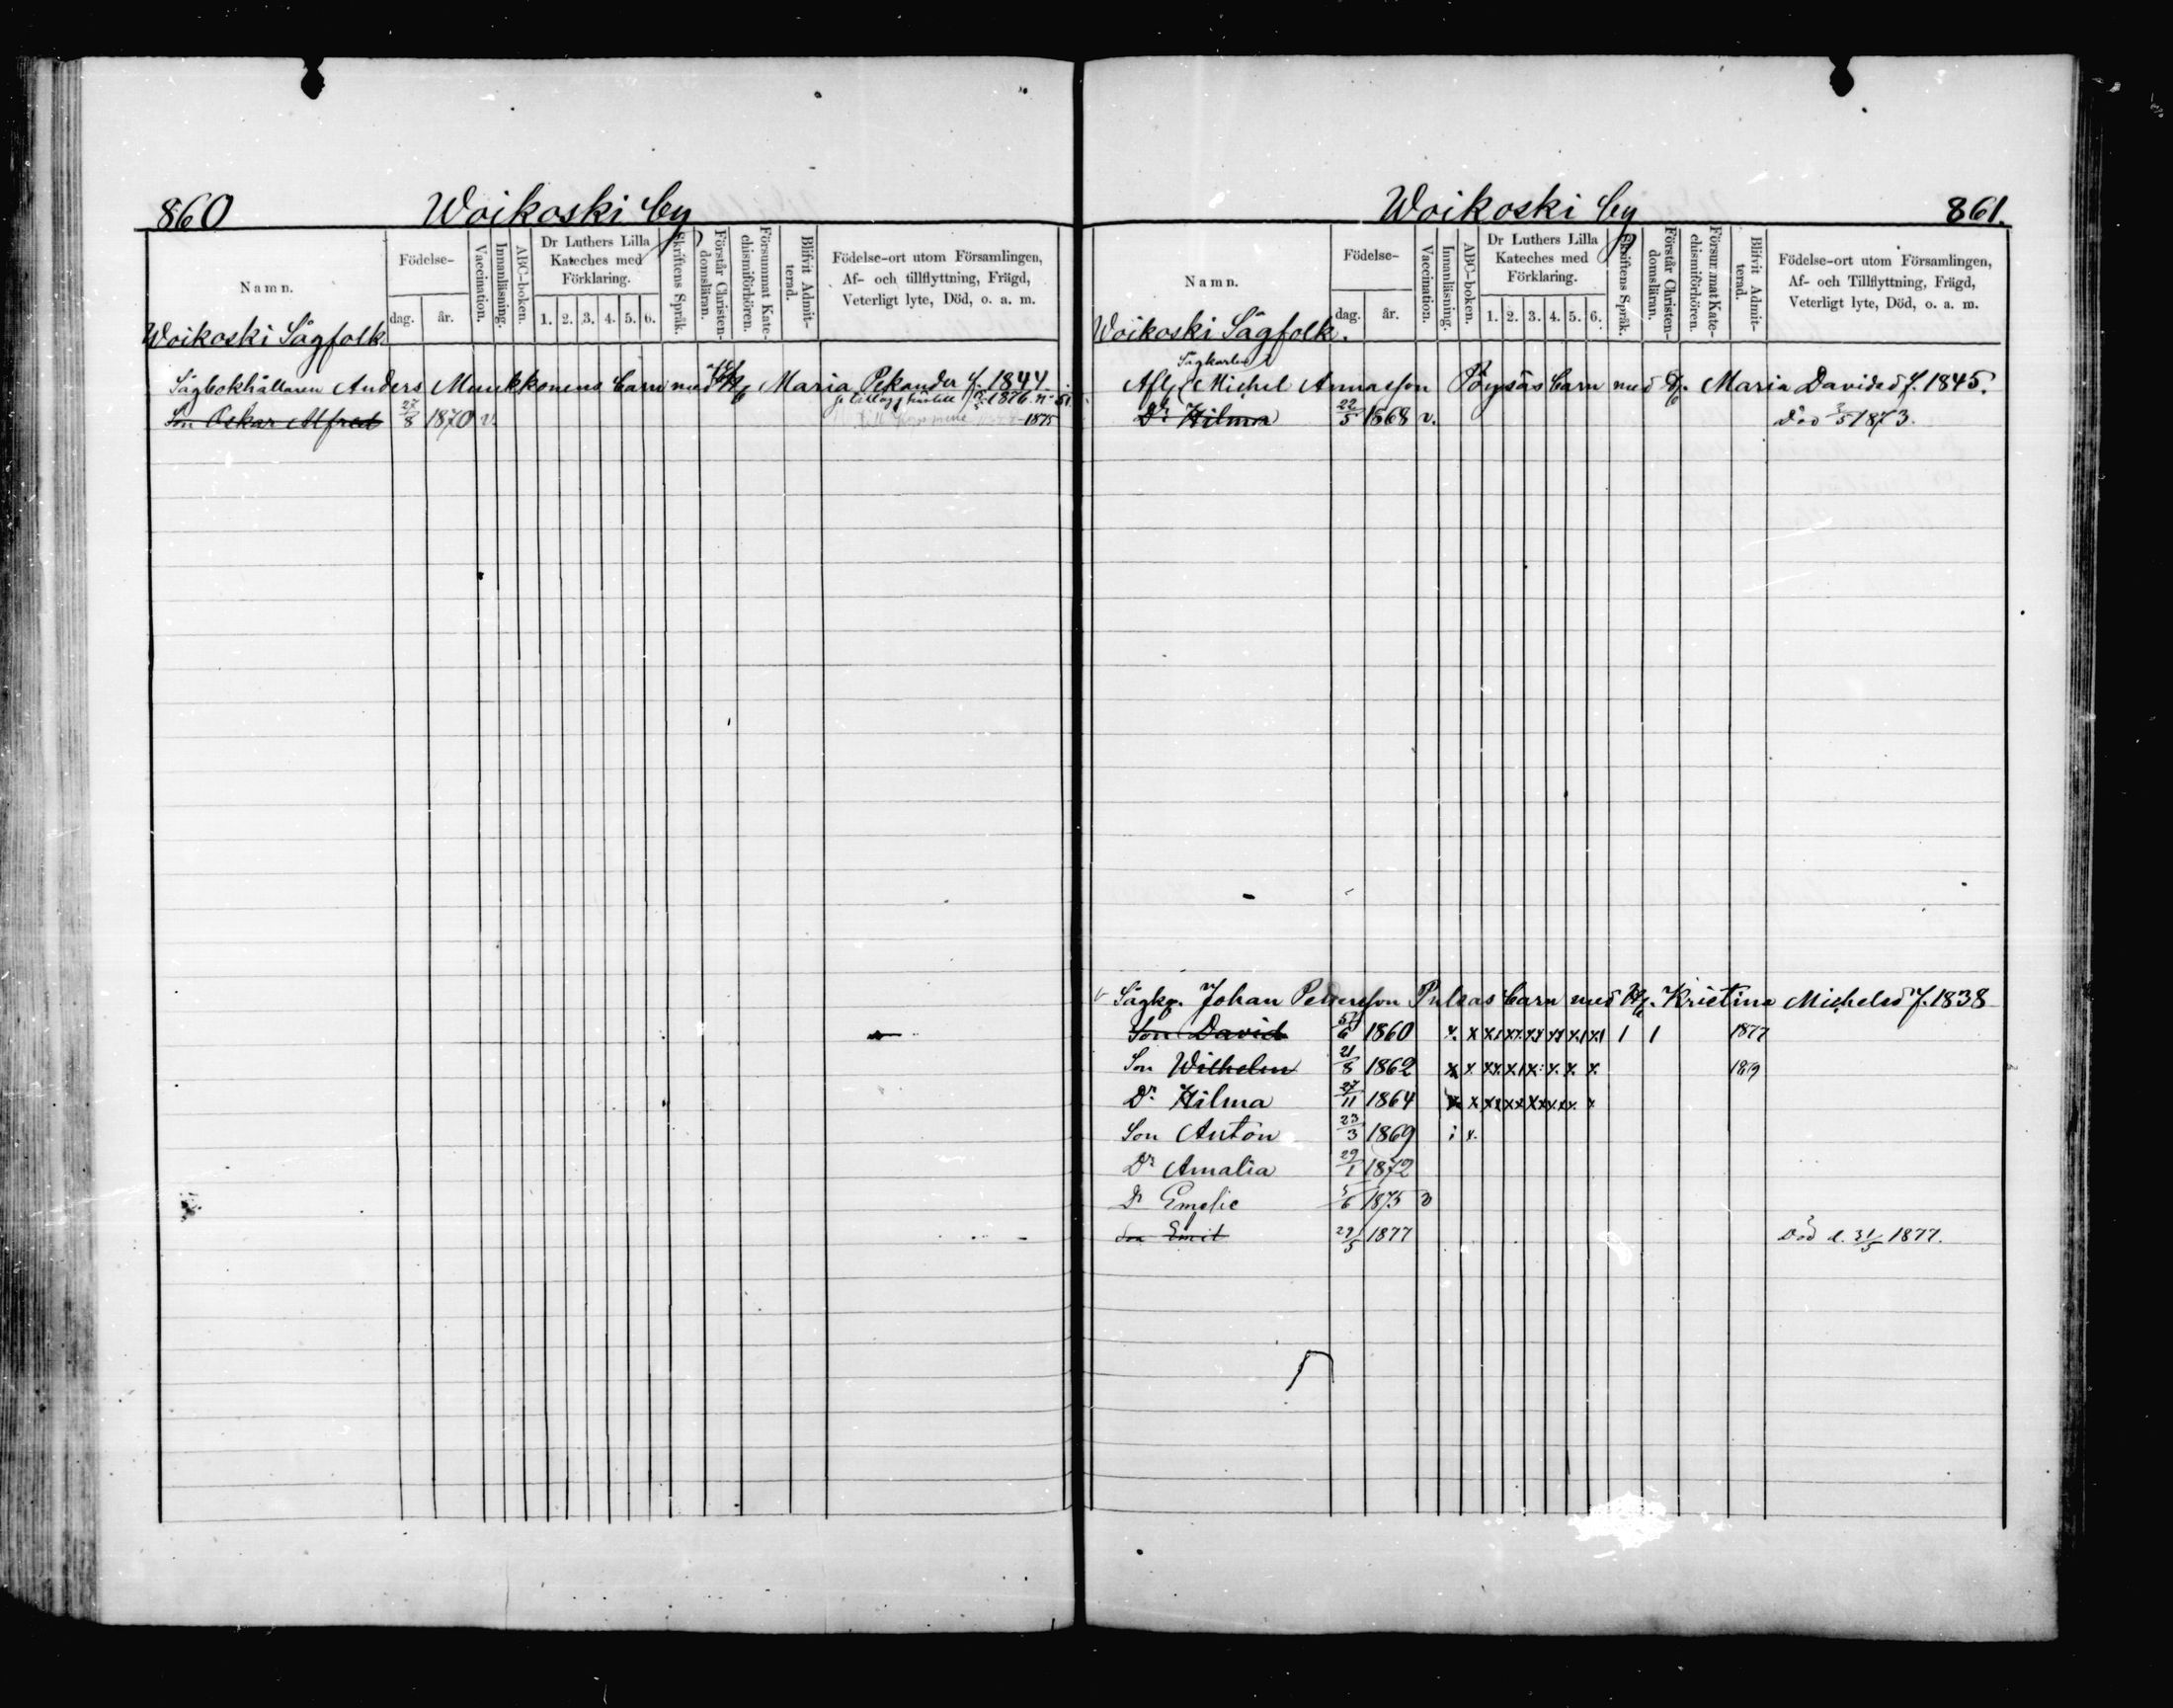 860 Woikoski by
Namn.
Födelse-
dag. år.
Vaccination.
Innanläsning.
ABC-boken.
Dr Luthers Lilla Kateches med Förklaring.
1. 2. 3. 4. 5. 6.
Skriftens Språk.
Förstår Christendomsläran.
Försummat Katechismiförhören.
Blifvit Admitterad.
Födelse-ort utom Församlingen,
Af- och tillflyttning, Frägd,
Veterligt lyte, Död, o. a. m.
Woikoski Sågfolk
Sågbokhållaren Anders Munkkonens barn med Maria Pekander f. 1844
Son Oskar Alfred 27/8 1870 v. 1875
Woikoski by 861.
Namn.
Födelse-
dag. år.
Vaccination.
Innanläsning.
ABC-boken.
Dr Luthers Lilla Kateches med Förklaring.
1. 2. 3. 4. 5. 6.
Skriftens Språk.
Förstår Christen-domsläran.
Försummat Kate-chismiförhören.
Blifvit Admit-terad.
Födelse-ort utom Församlingen,
Af- och Tillflyttning, Frägd,
Veterligt lyte, Död, o. a. m.
Woikoski Sågfolk.
Sågkarlen
Afl. Michel Annasson Pöysäs barn med Maria Davidsd f. 1845.
Dr Hilma 22/5 1868 v. Död 1873.
Sågk. Johan Pettersson Pulsas barn med Hu. Kristina Michelsd f. 1838
Son David 1860 1 1 1877
Son Wilhelm 21/8 1862 x x
Dr Hilma 27/11 1864 x x
Son Anton 23/3 1869 i x.
Dr Amalia 29/1 1872
Dr Emelie 5/6 1875 v
Son Emil 29/5 1877 Död d. 31/5 1877.